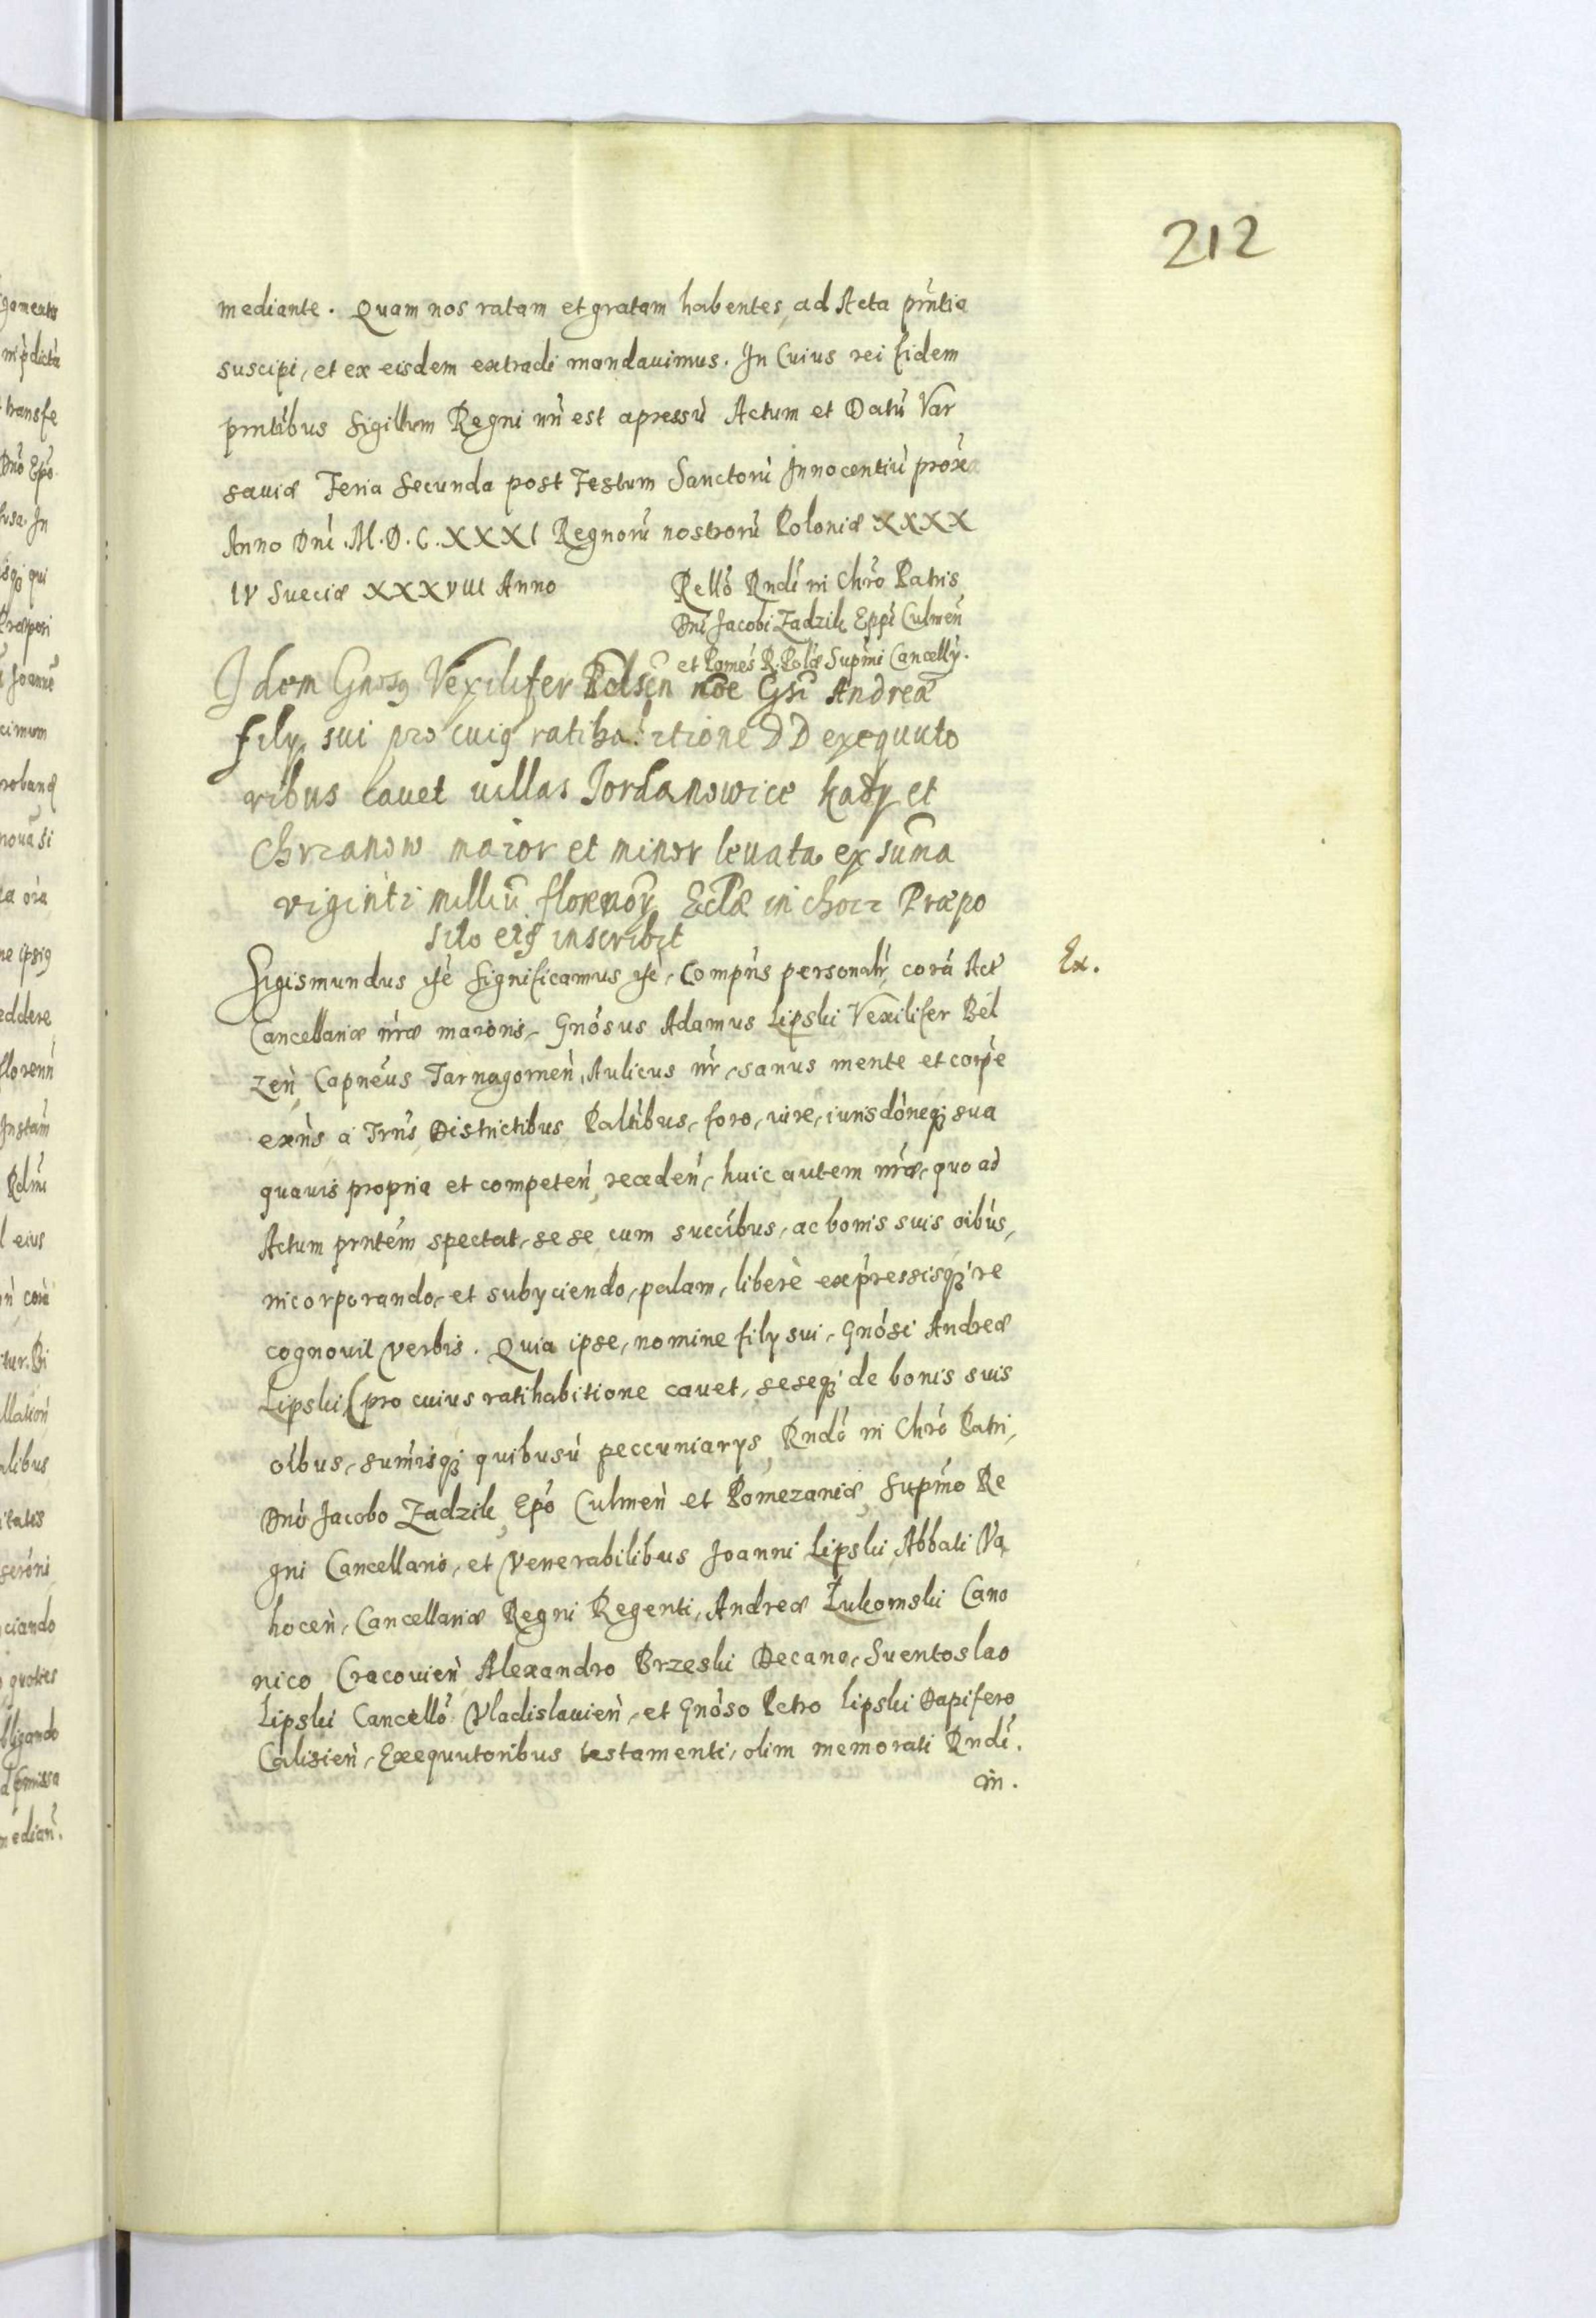 212
mediante. Quam nos ratam et gratam habentes, ad Acta pñtia
suscipi, et ex eisdem extradi mandauimus. In Cuius rei fidem
pñtibus Sigillum Regni nr̃ est apressũ Actum et Datũ Var
sauiæ Feria Secunda post Festum Sanctorũ Innocentiũ proxa
Anno Dñi .M.D.C.XXXI Regnorũ nostrorũ Poloniæ XXXX
IV Sueciæ XXXVIII Anno
Rellõ Rndĩ in Chrõ Patris
Dñi Jacobi Zadzik Eppĩ Culmeñ
et Pomeš R. Polæ Supmĩ Cancellÿ.
Idem Gnosꝰ Vexilifer Belseñ nõe Gsi Andreæ
filÿ sui pro cuiꝰ ratihabitione DD exequuto
ribus cauet uillas Jordanowice Kady et
Chrzanow maior et minor leuata ex sũma
viginti milliũ florenorꝝ Eclæ in Chocz Præpo
sito eiꝰ inscribit
Sigismundus &c̃ Significamus &c̃. Compñs personalr̃, corã Act̃
Ex.
Cancellariæ nr̃æ maioris, Gnõsus Adamus Lipski Vexilifer Bel
zeñ, Capneũs Tarnogoreñ, Aulicus nr̃, sanus mente et corpẽ
exñs, á Trr̃is, Districtibus Paltĩbus, foro, iure, iurisdõneqꝫ sua
quauis propria et competeñ, recedeñ, huic autem nr̃æ, quo ad
Actum prntẽm spectat, sese cum succĩbus, ac bonis suis oibũs,
incorporando, et subÿciendo, palam, liberè expressisqꝫ re
cognouit verbis. Quia ipse, nomine filÿ sui, Gnõsi Andreæ
Lipski, (pro cuius ratihabitione cauet, seseqꝫ de bonis suis
oĩbus, sum̃isqꝫ quibusũ peccuniarÿs, Rndõ in Chrõ Patri,
Dnõ Jacobo Zadzik, Epõ Culmeñ et Pomezaniæ, Supmõ Re
gni Cancellario, et Venerabilibus Joanni Lipski, Abbati Va
hoceñ, Cancellariæ Regni Regenti, Andreæ Łukomski Cano
nico Cracouieñ, Alexandro Brzeski Decano, Suentoslao
Lipski Cancellõ Vladislauieñ, et Gnõso Petro Lipski Dapifero
Calisieñ, Exequutoribus testamenti, olim memorati Rndĩ.
in.